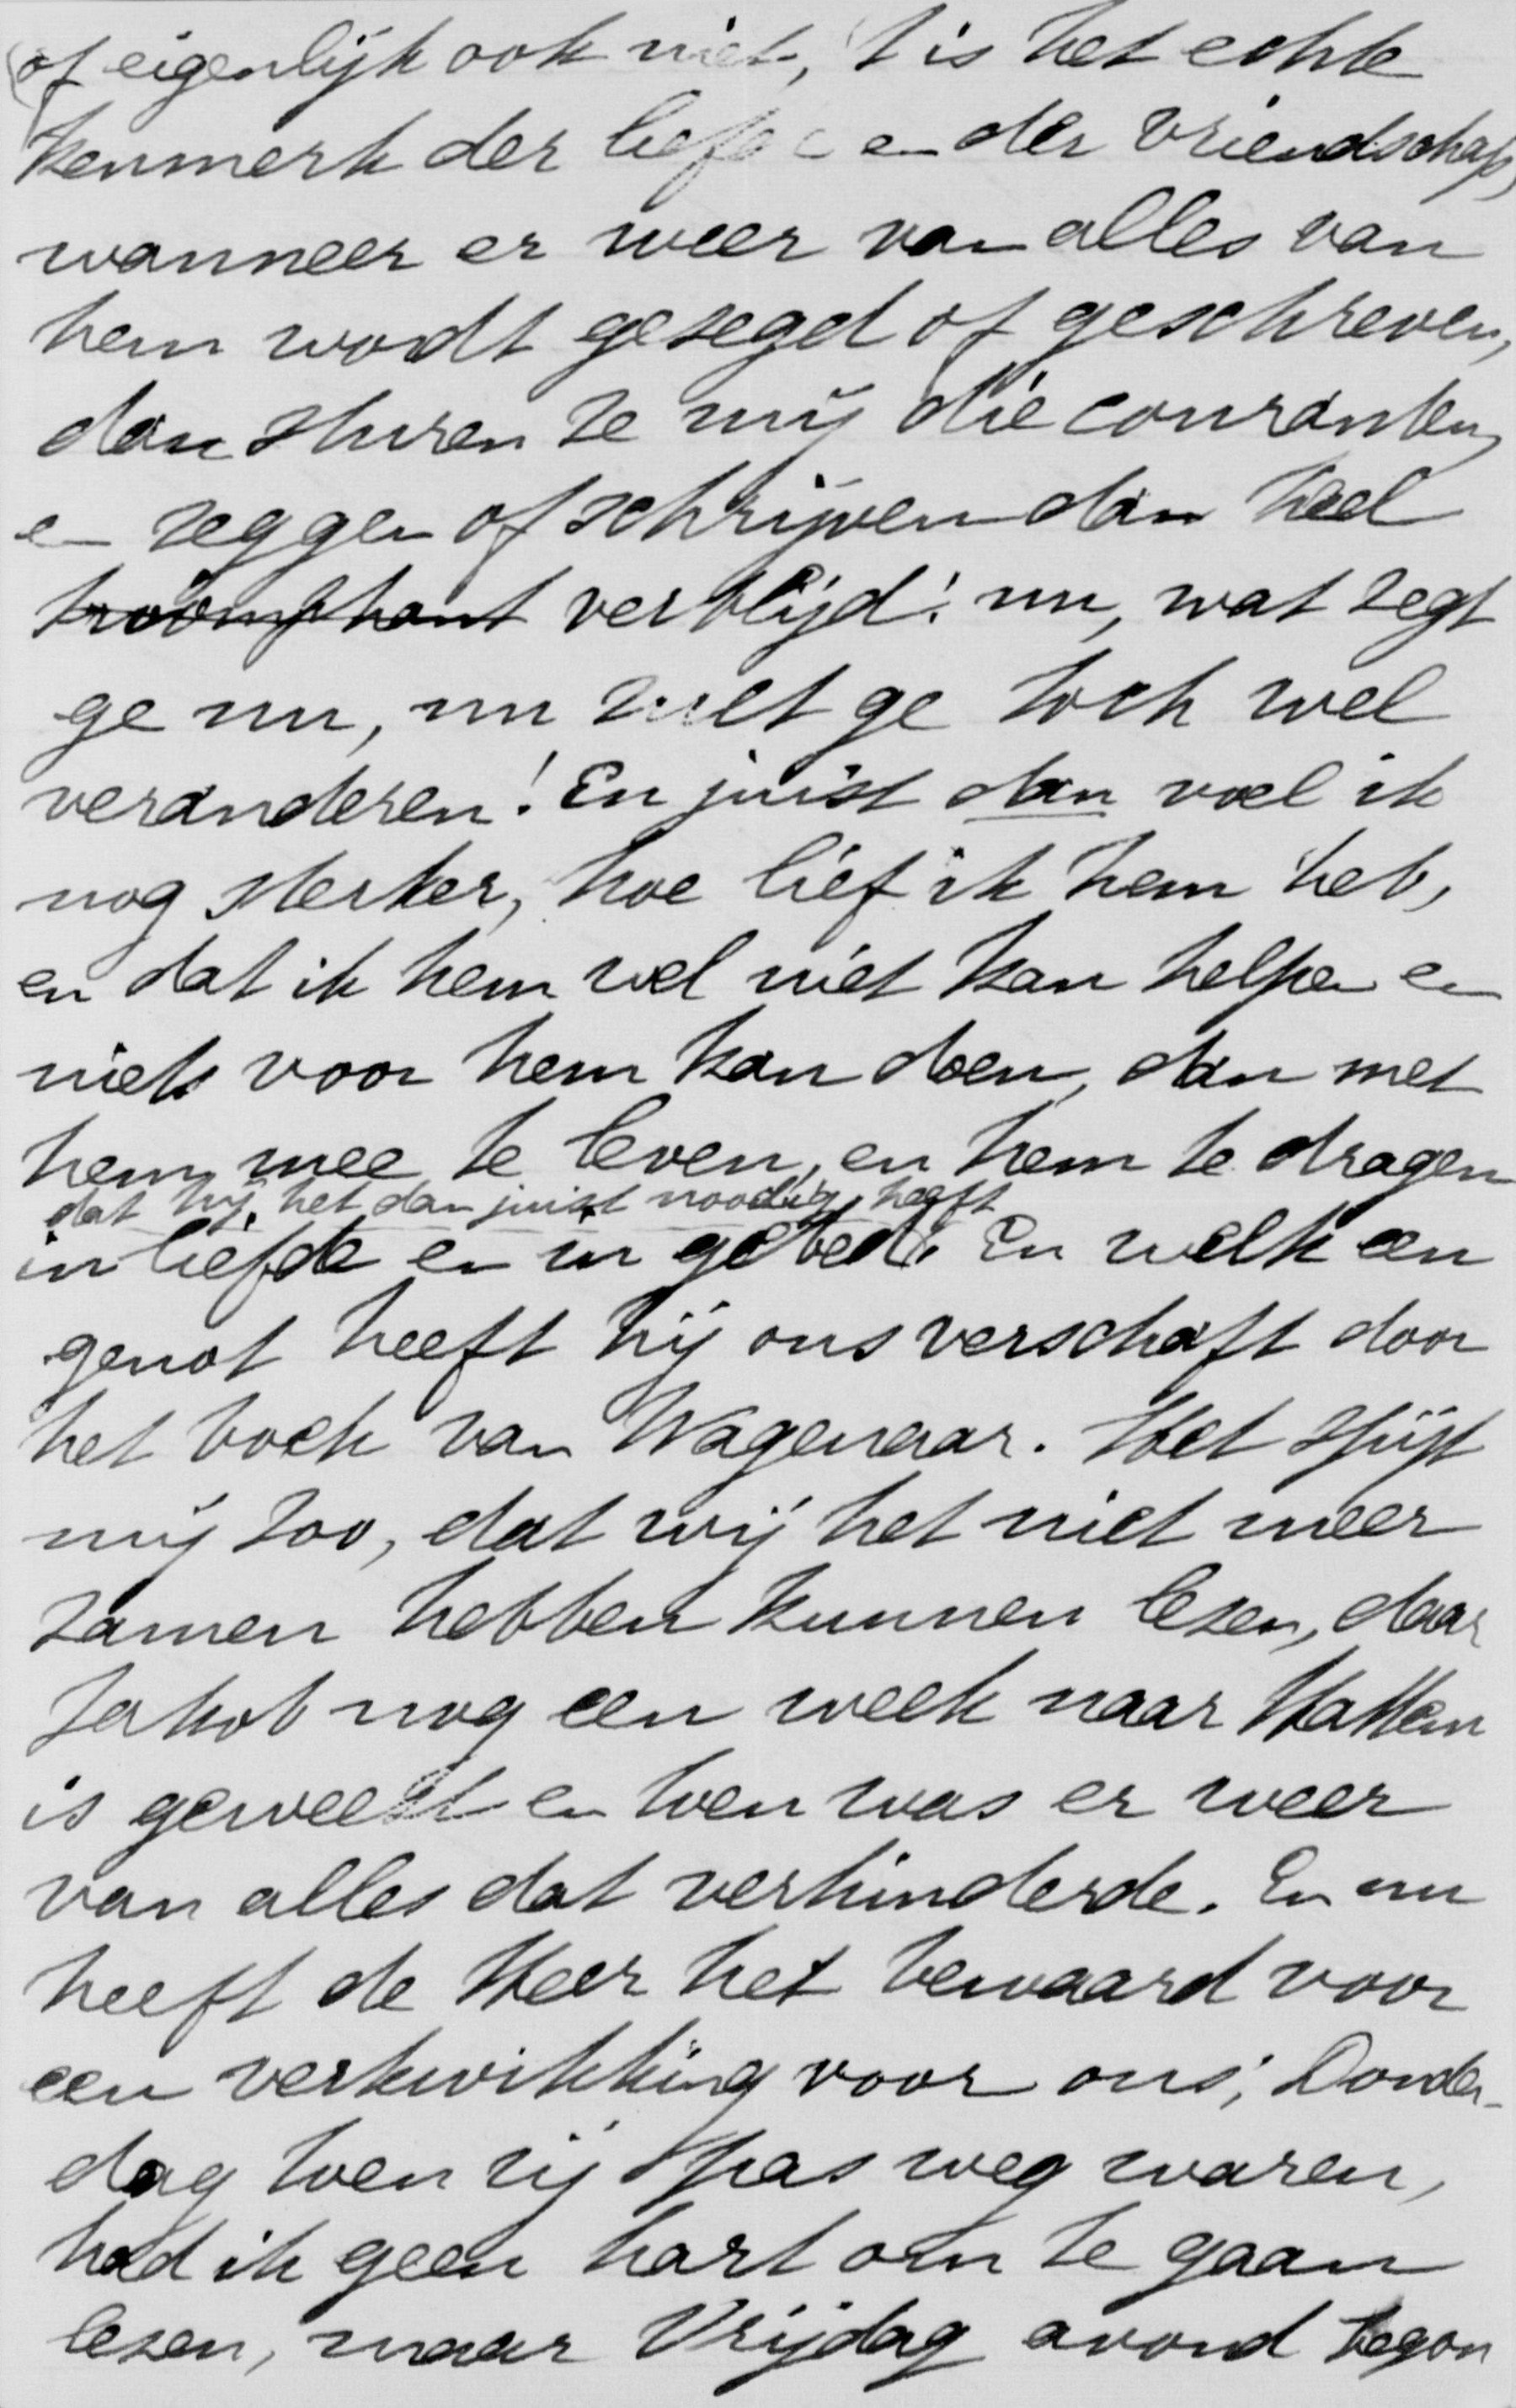 (of eigenlijk ook niet, 't is het echte
kenmerk der liefde en der vriendschap,
wanneer er weer van alles van
hem wordt gezegd of geschreven,
dan sturen ze mij die couranten,
en zeggen of schrijven dan heel
trioomphant verblijd: nu, wat zegt
ge nu, nu zult ge toch wel
veranderen! En juist dan voel ik
nog sterker, hoe lief ik hem heb,
en dat ik hem wel niet kan helpen en
niets voor hem kan doen, dan met
hem mee te leven, en hem te dragen
dat hij het dan juist noodig heeft
in liefde en in gebed. En welk een
genot heeft hij ons verschaft door
het boek van Wagenaar. Het spijt
mij zoo, dat wij het niet meer
zamen hebben kunnen lezen, daar
Jakob nog een week naar Hattem
is geweest en toen was er weer
van alles dat verhinderde. En nu
heeft de Heer het bewaard voor
een verkwikking voor ons; Donder-
dag toen zij pas weg waren,
had ik geen hart om te gaan
lezen, maar Vrijdag avond begon